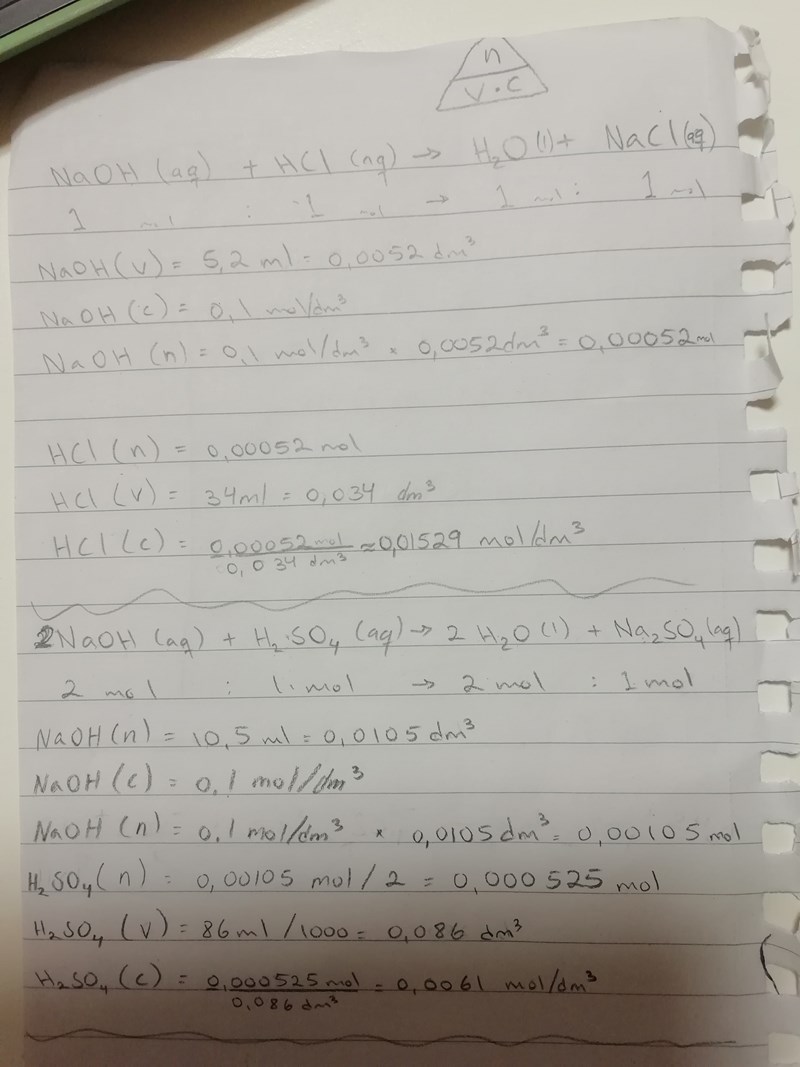 n
V · C
NaOH (aq) + HCl (aq) → H₂O (l) + NaCl (aq)
1 mol : 1 mol → 1 mol : 1 mol
NaOH (v) = 5,2 ml = 0,0052 dm³
NaOH (c) = 0,1 mol/dm³
NaOH (n) = 0,1 mol/dm³ × 0,0052 dm³ = 0,00052 mol
HCl (n) = 0,00052 mol
HCl (v) = 34 ml = 0,034 dm³
HCl (c) = 0,00052 mol / 0,034 dm³ ≈ 0,01529 mol/dm³
2NaOH (aq) + H₂SO₄ (aq) → 2 H₂O (l) + Na₂SO₄ (aq)
2 mol : 1 mol → 2 mol : 1 mol
NaOH (n) = 10,5 ml = 0,0105 dm³
NaOH (c) = 0,1 mol/dm³
NaOH (n) = 0,1 mol/dm³ × 0,0105 dm³ = 0,00105 mol
H₂SO₄ (n) = 0,00105 mol / 2 = 0,000525 mol
H₂SO₄ (v) = 86 ml / 1000 = 0,086 dm³
H₂SO₄ (c) = 0,000525 mol / 0,086 dm³ = 0,0061 mol/dm³